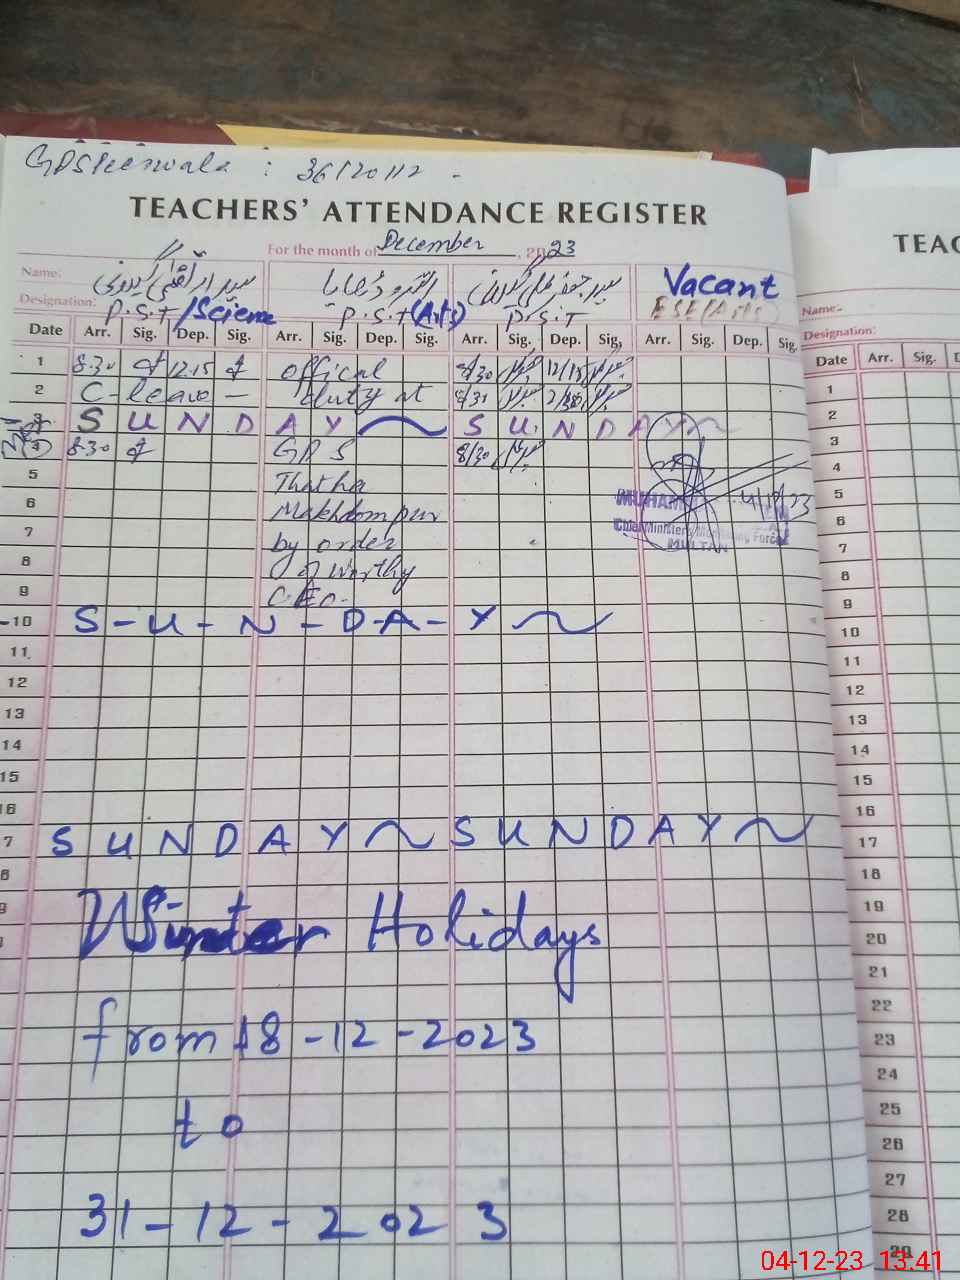 GPS Peerwala : 36120112 -
TEACHERS' ATTENDANCE REGISTER
TEAC
For the month of December, 2023
Name: Vacant
Name:-
Designation: P.S.T/Science P.S.T (Arts) P.S.T ESE(Arts)
Designation:
Date Arr. Sig. Dep. Sig. Arr. Sig. Dep. Sig. Arr. Sig. Dep. Sig. Arr. Sig. Dep. Sig.
Date Arr. Sig. D
1 8:30 12:15 Offical 8/30 12/15
2 C-leave - duty at 8/31
3 SUNDAY SUNDAY
4 8:30 GPS 8/30
5 Thatha
6 Makhdompur
7 by order
8 of worthy
9 CEO.
MUHAMM 4/12/23
Chief Ministers Monitoring Force
MULTAN
10 S-U-N-D-A-Y
11
12
13
14
15
16
7 SUNDAY SUNDAY
8
9
Winter Holidays
from 18-12-2023
to
31-12-2023
1
2
3
4
5
6
7
8
9
10
11
12
13
14
15
16
17
18
19
20
21
22
23
24
25
26
27
28
29
04-12-23 13:41